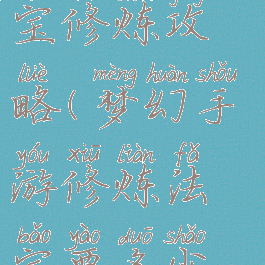 宝修炼攻
lüè mèng huàn shǒu
略(梦幻手
yóu xiū liàn fǎ
游修炼法
bǎo yào duō shǎo
宝要多少